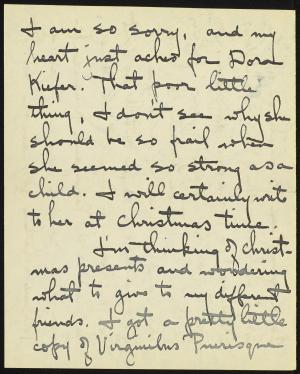 I am so sorry, and my
heart just ached for Dora
Kiefer. That poor little
thing, I don't see why she
should be so frail when
she seemed so strong as a
child. I will certainly write
to her at Christmas time.
I'm thinking of Christ-
mas presents and wondering
what to give to my different
friends. I got a pretty little
copy of Virginibus Puerisque